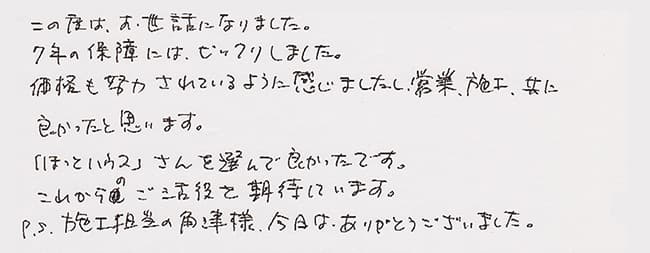 この度は、お世話になりました。
7年の保障には、ビックリしました。
価格も努力されているように感じましたし、営業、施工、共に
良かったと思います。
「ほっとハウス」さんを選んで良かったです。
これからのご活役を期待しています。
P.S. 施工担当の角津様、今日は、ありがとうございました。